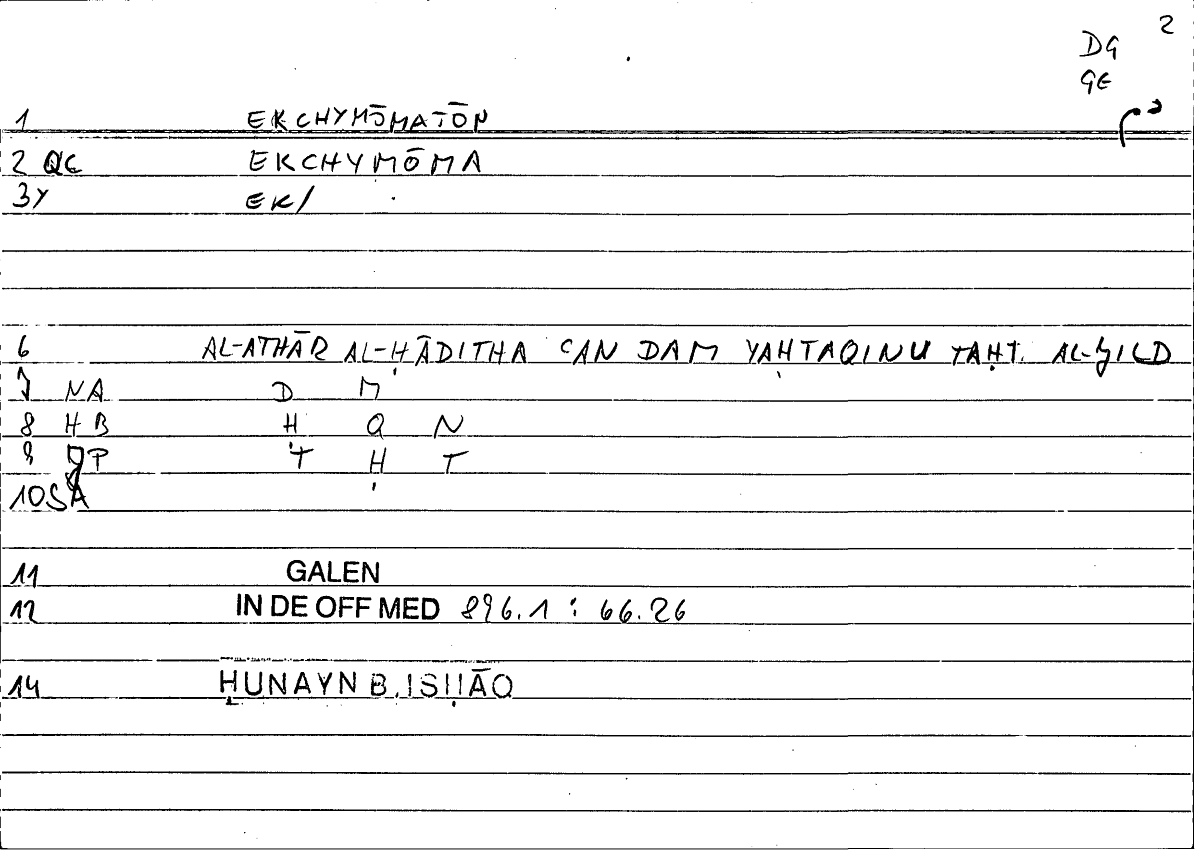 2
DG
GE
1 EKCHYMŌMATŌN
2 QC EKCHYMŌMA
3Y EK/
6 AL-ATHĀR AL-ḤĀDITHA ʿAN DAM YAḤTAQINU TAḤT AL-ǦILD
7 NA D M
8 HB Ḥ Q N
9 QP T Ḥ T
10 SA
11 GALEN
12 IN DE OFF MED 896.1 : 66.26
14 ḤUNAYN B. ISḤĀQ